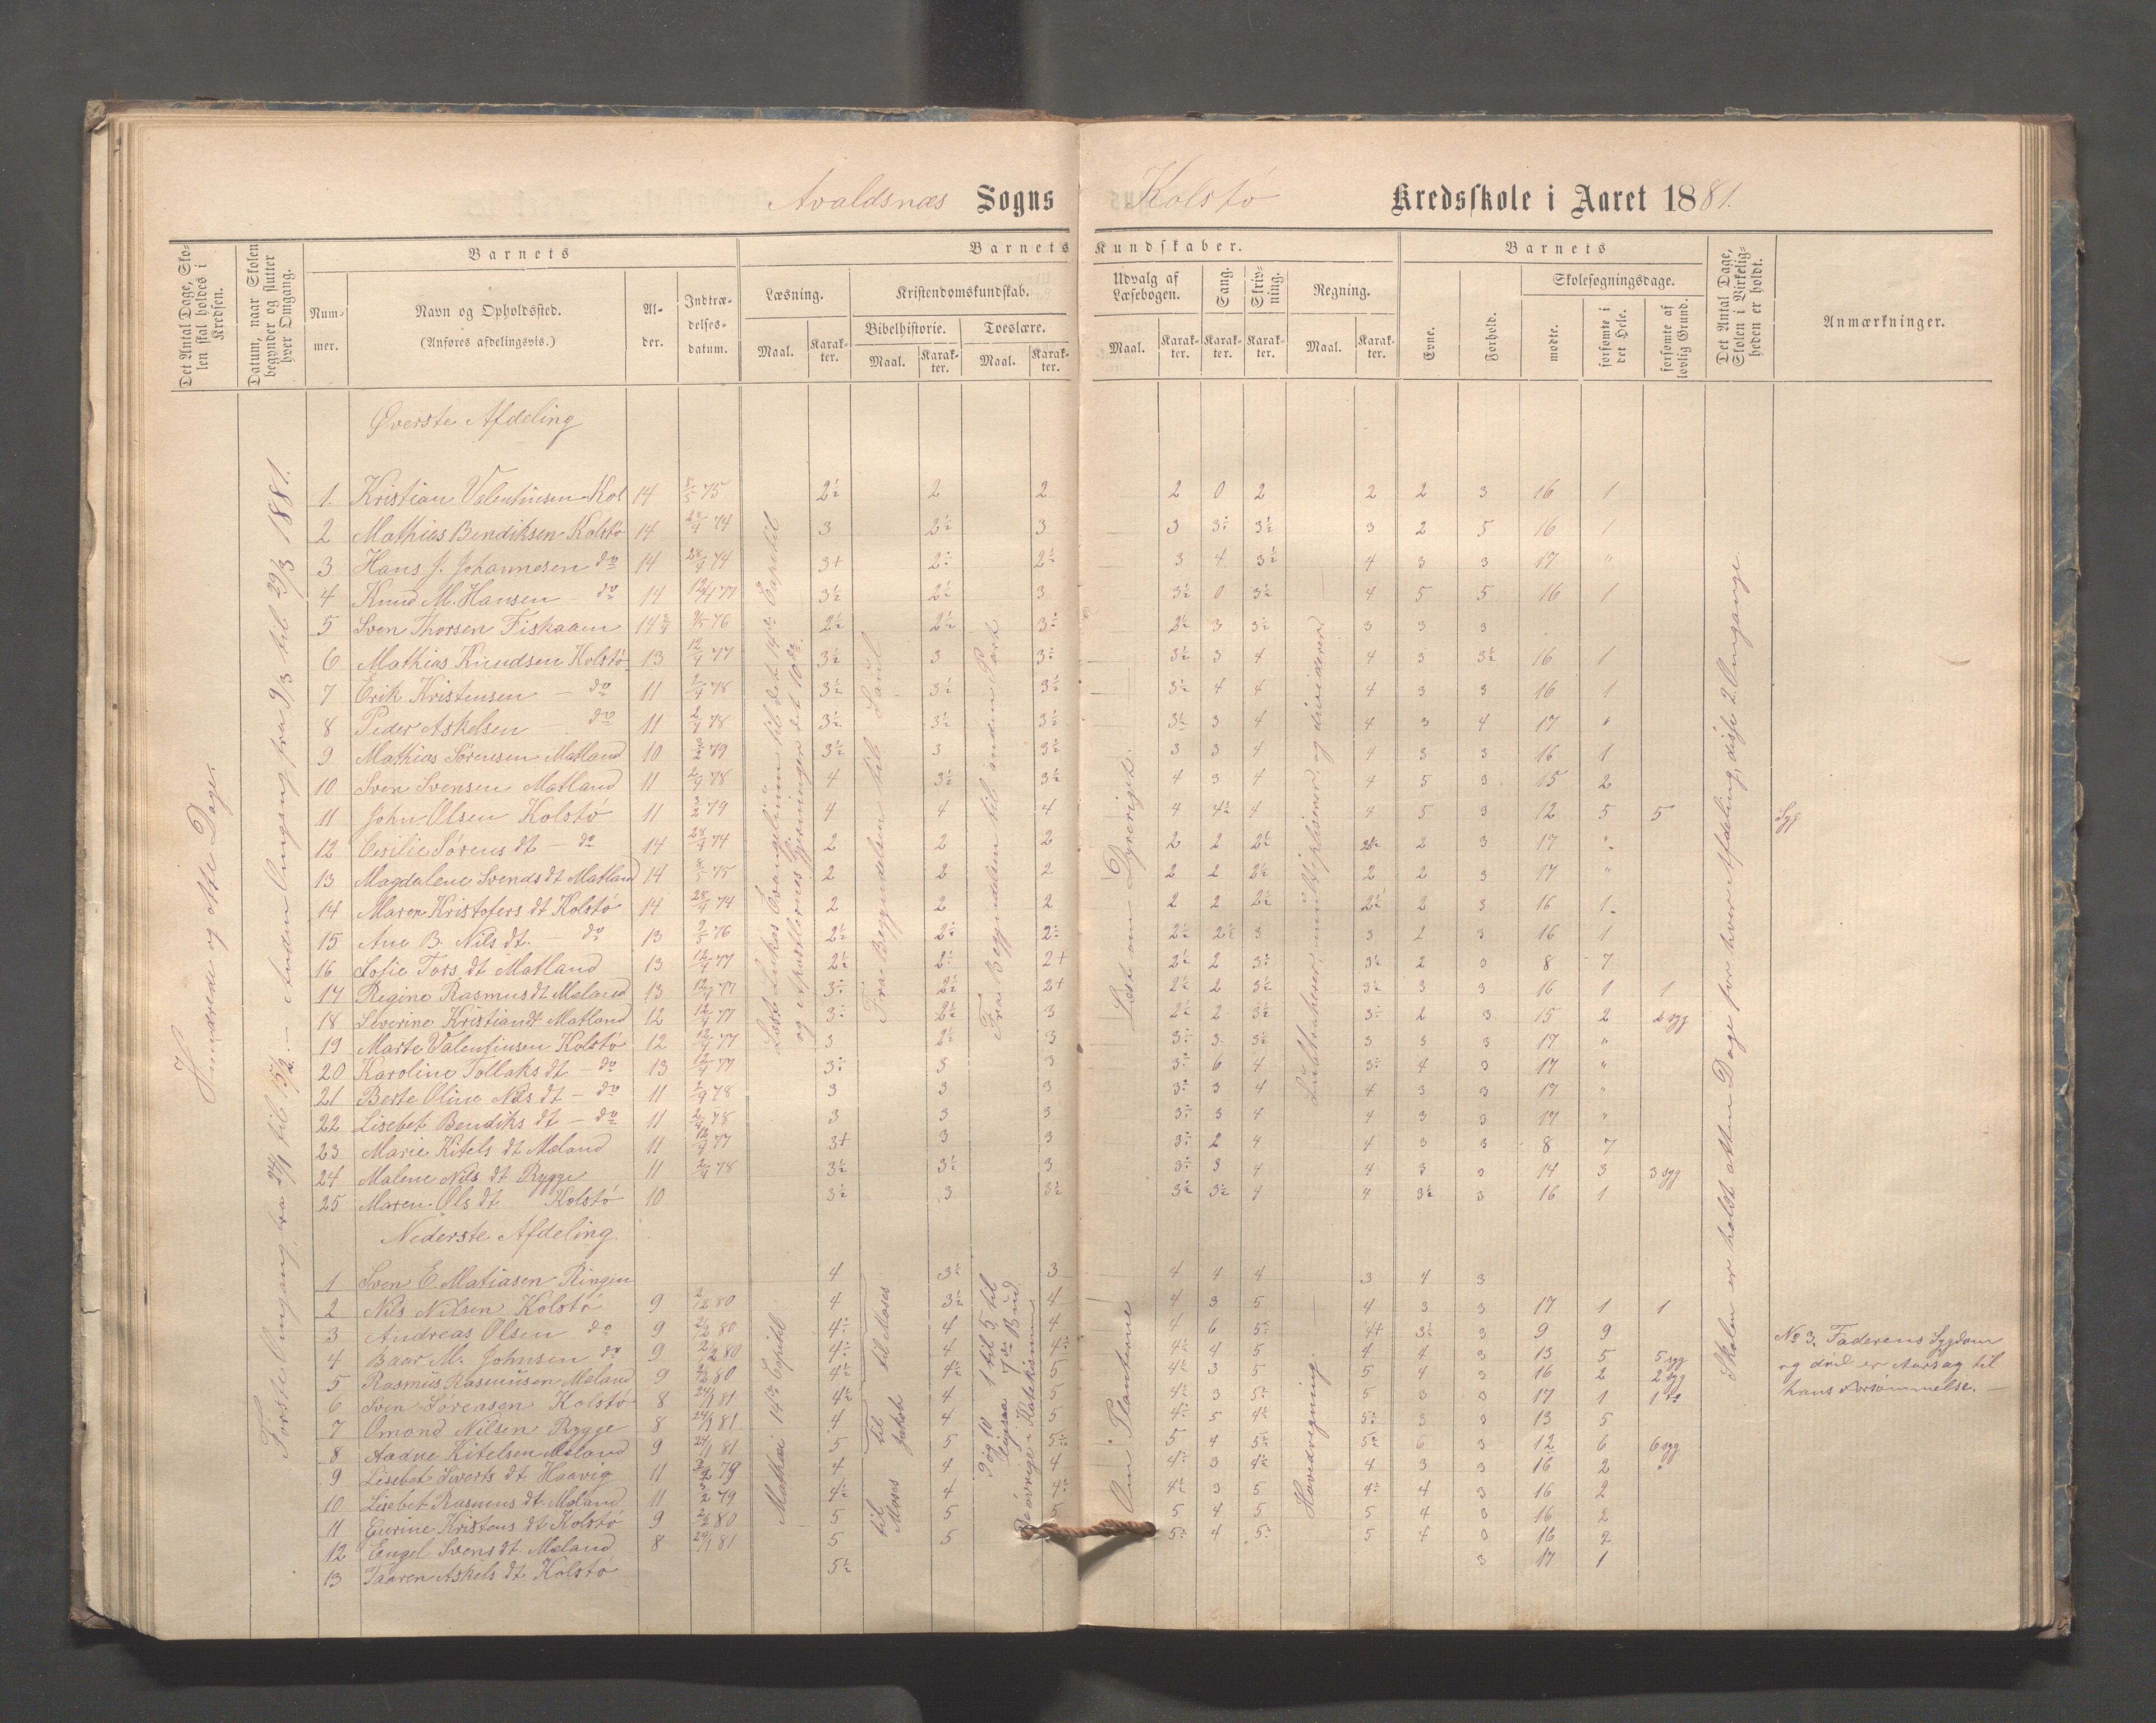 Avaldsnæs Sogns Kolstø Kredsskole i Aaret 1881.
Det Antal Dage, Skolen skal holdes i Kredsen.
Datum, naar Skolen begynder og slutter hver Omgang.
Barnets
Nummer.
Navn og Opholdssted.
(Anføres afdelingsvis.)
Alder.
Indtrædelsesdatum.
Barnets Kundskaber.
Læsning.
Maal. Karakter.
Kristendomskundskab.
Bibelhistorie.
Maal. Karakter.
Troeslære.
Maal. Karakter.
Udvalg af Læsebogen.
Maal. Karakter.
Sang.
Karakter.
Skrivning.
Karakter.
Regning.
Maal. Karakter.
Barnets
Evne.
Forhold.
Skolesøgningsdage.
mødte.
forsømte i det Hele.
forsømte af lovlig Grund.
Det Antal Dage, Skolen i Virkeligheden er holdt.
Anmærkninger.
Øverste Afdeling
1. Kristian Valentinsen Kol 14 8/5 75 2½ 2 2 2 0 2 2 2 3 16 1
2 Mathias Bendiksen Kolstø 14 28/4 74 3 3½ 3 3 3÷ 3½ 3 2 5 16 1
3 Hans J. Johannesen do 14 28/4 74 3+ 2÷ 2½ 3 4 3½ 4 3 3 17 "
4 Knud M. Hansen - do 14 12/4 77 3½ 2½ 3 3½ 0 3½ 4 5 5 16 1
5 Sven Thorsen Fiskaaen 14 9/5 76 2½ 2½ 3÷ 2½ 3 3½ 3 3 3
6 Mathias Knudsen Kolstø 13 12/4 77 3½ 3 3÷ 3½ 3 4 4 3 3½ 16 1
7 Erik Kristensen - do 11 2/4 78 3½ 3½ 3½ 3½ 4 4 4 3 3 16 1
8 Peder Askelsen - do 11 2/4 78 3½ 3½ 3½ 3½ 3 4 4 3 4 17 "
9 Mathias Sørensen Matland 10 3/2 79 3½ 3 3½ 3 3 4 4 3 3 16 1
10 Sven Svensen Matland 11 2/4 78 4 3½ 3½ 4 3 4 4 5 3 15 2
11 John Olsen Kolstø 11 3/2 79 4 4 4 4 4½ 4 4 5 3 12 5 5 Syg
12 Cesilie Sørens dt - do 14 28/4 74 2 2 2 2 2 2½ 2½ 2 3 17 "
13 Magdalene Svends dt Matland 14 8/5 75 2 2 2 2 2 2½ 2 2 3 17 "
14 Maren Kristofers dt Kolstø 14 28/4 74 2 2 2 2 2 2½ 2½ 2 3 16 1
15 Ane B. Nils dt. - do 13 9/5 76 2½ 2÷ 2÷ 2½ 2½ 3 3 2 3 16 1
16 Sofie Tors dt Matland 13 12/4 77 2½ 2÷ 2+ 2½ 2 3÷ 3½ 2 3 8 7
17 Regine Rasmusdt Mæland 13 12/4 77 3÷ 2½ 2+ 2½ 2 3½ 3½ 3 3 16 1 1
18 Severine Kristiandt Matland 12 12/4 77 3÷ 2½ 3 2½ 2 3½ 3÷ 2 3 15 2 2 syg
19 Marte Valentinsen Kolstø 12 12/4 77 3 2½ 3 3÷ 3 3½ 3 3 3 17 "
20 Karoline Tollaks dt - do 13 12/4 77 3÷ 3 3 3÷ 6 4 3÷ 4 3 17 "
21 Berte Oline Nils dt - do 11 2/4 78 3 3 3 3÷ 3 4 4 3 3 17 "
22 Lisebet Bendiks dt - do 11 2/4 78 3 3 3 3÷ 3 4 4 3 3 17 "
23 Marie Kitels dt Mæland 11 12/4 77 3+ 3 3 3÷ 2 4 4 3 3 8 7
24 Malene Nils dt Rygge 11 2/4 78 3½ 3½ 3 3÷ 3 4 4 3 3 14 3 3 syg
25 Maren Ols dt Kolstø 10 3½ 3 3½ 3½ 3½ 4 4 3½ 3 16 1
Nederste Afdeling
1 Sven E. Matiasen Ringen 4 3÷ 3 4 4 4 3 4 3
2 Nils Nilsen Kolstø 9 2/2 80 4 3½ 4 4 3 5 4 3 3 17 1 1
3 Andreas Olsen do 9 2/2 80 4÷ 4 4 4 6 5÷ 4+ 3½ 3 9 9
4 Baar M. Johnsen do 9 2/2 80 4÷ 4 4÷ 4½ 4 5 4 4 3 13 5 5 syg
5 Rasmus Rasmusen Mæland 9 2/2 80 4½ 4½ 5 4½ 3 5 5 4 3 16 2 2 syg
6 Sven Sørensen Kolstø 8 24/1 81 4½ 4 5 4½ 3 5÷ 5 3 3 17 1 1 do
7 Omond Nilsen Rygge 8 24/1 81 4 4 5 4÷ 5 4½ 5÷ 3 3 13 5
8 Aadne Kitelsen Mæland 9 24/1 81 5 5 5÷ 5 4 5÷ 5÷ 6 3 12 6 6 syg
9 Lisebet Siverts dt Haavig 11 3/2 79 4 4 4 4÷ 3 4½ 4 3 3 16 2 "
10 Lisebet Rasmus dt. Mæland 11 3/2 79 4½ 4 4÷ 4½ 3 5 4÷ 4 3 16 2
11 Eurine Kristens dt Kolstø 9 2/2 80 5 5 5 5 4 5 5 4 3 16 2
12 Engel Svens dt Mæland 8 24/1 81 5 5 5÷ 4 5÷ 5 4 3 16 2
13 Taaren Askels dt Kolstø 5½ 3 17 1
Hundrede og otte Dage.
Første Omgang fra 24/1 til 15/2. — Anden Omgang fra 9/3 til 29/3 1881.
Læst Lukas Evangelium til det 14de Capitel
og Apostlernes Gjerninger det 10de
Fra Begyndelsen til Saul
Fra Begyndelsen til anden Part
Læst om Dyreriget.
Subtraherer, multiplicerer og dividerer
Skolen er holdt atten Dage for hver Afdeling, disse 2 Omgange
Mathæi 14de Capitel
til Moses
til Jakob
til Moses
9 og 10 1 til 5, til
ligesaa 7de Bud
De øvrige i Katekismus
Om Planterne
Hovedregning.
No 3. Faderens Sygdom
og død er Aarsag til
hans Forsømmelse. —